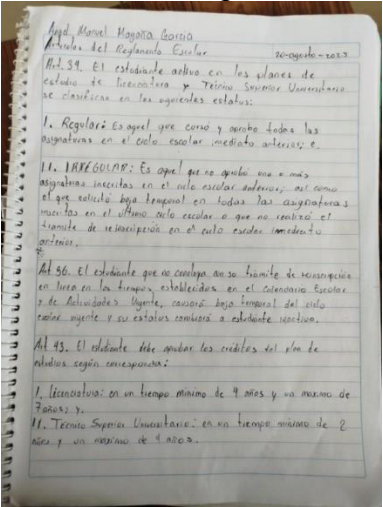 Angel Manuel Magaña Garcia
Articulos del Reglamento Escolar 20-agosto-2023
Art. 34. El estudiante activo en los planes de
estudio de Licenciatura y Técnico Superior Universitario
se clasifican en los siguientes estatus:
I. Regular: Es aquel que cursó y aprobo todas las
asignaturas en el ciclo escolar inmediato anterior; e.
II. IRREGULAR: Es aquel que no aprobó una o más
asignaturas inscritas en el ciclo escolar anterior, así como
el que solicitó baja temporal en todas las asignaturas
inscritas en el último ciclo escolar o que no realizó el
tramite de reinscripción en el ciclo escolar inmediato
anterior.
Art 36. El estudiante que no concluya con su trámite de reinscripción
en linea en los tiempos, establecidos en el Calendario Escolar
y de Actividades Vigente, causará baja temporal del ciclo
escolar vigente y su estatus cambiará a estudiante inactivo.
Art 43. El estudiante debe aprobar los créditos del plan de
estudios según corresponda:
I. Licenciatura: en un tiempo minimo de 4 años y un maximo de
7 años; y.
II. Técnico Superior Universitario: en un tiempo minimo de 2
años y un maximo de 4 años.